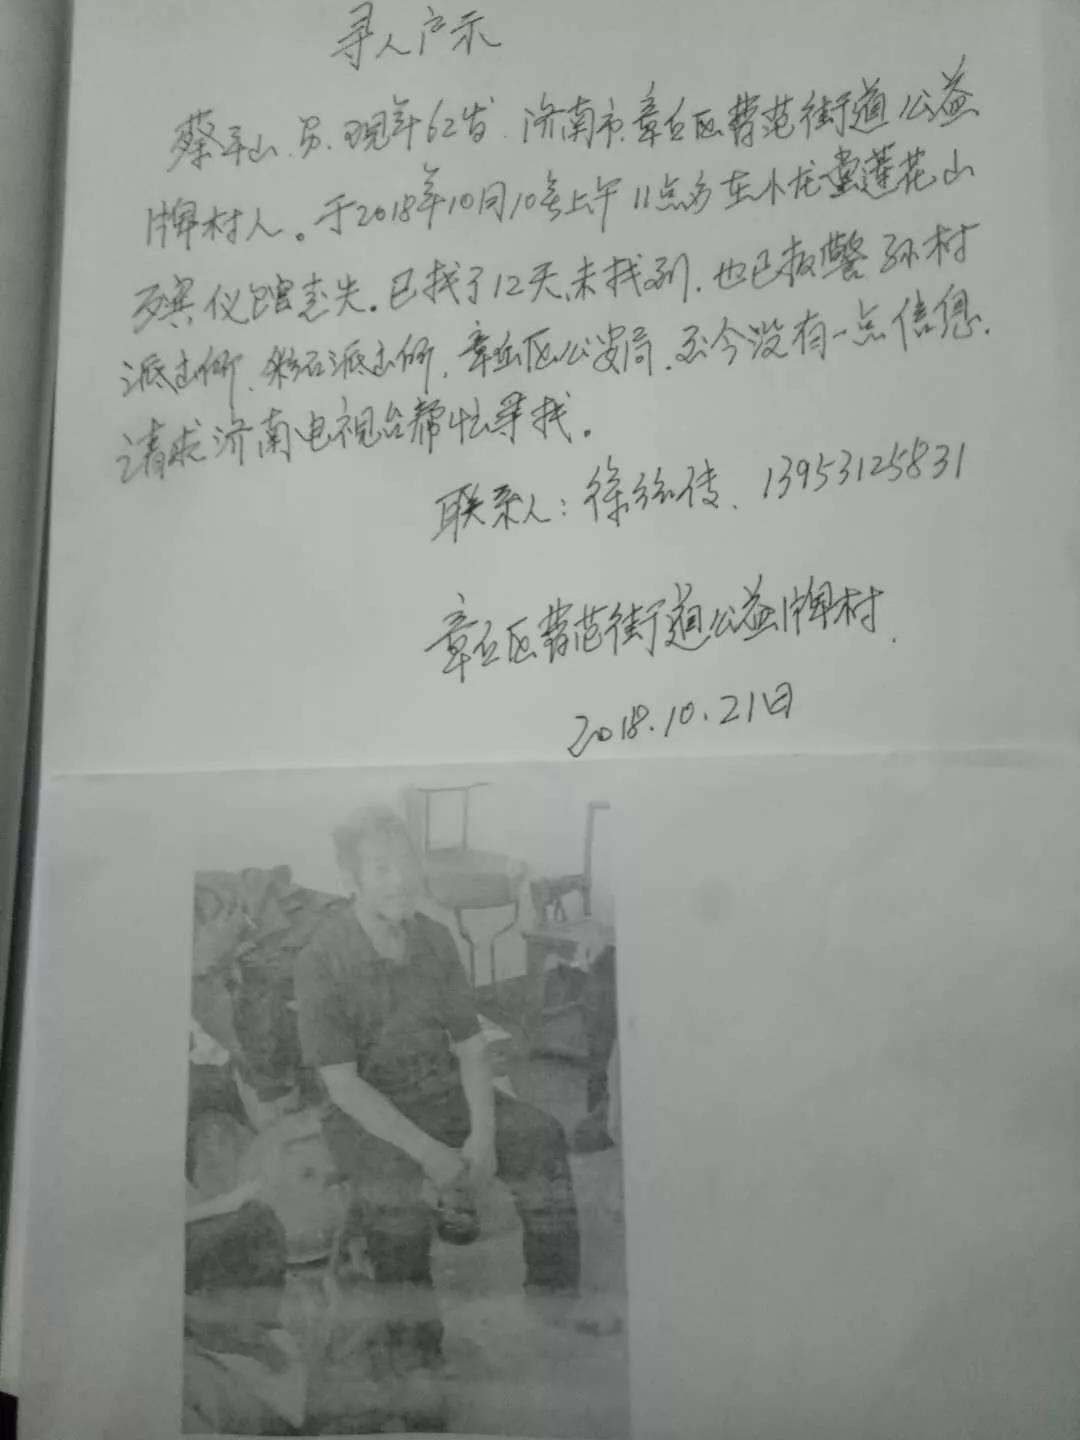 寻人启示
蔡平山、男、现年62岁、济南市章丘区曹范街道公益
牌村人。于2018年10月10号上午11点多在卧龙堂莲花山
殡仪馆走失。已找了12天、未找到、也已报警孙村
派出所、彩石派出所、章丘区公安局、至今没有一点信息、
请求济南电视台帮忙寻找。
联系人：徐传、13953125831
章丘区曹范街道公益牌村、
2018.10.21日